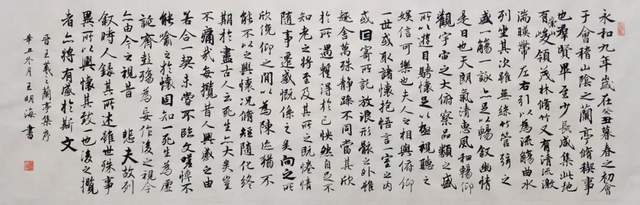 永和九年歲在癸丑暮春之初會
于會稽山陰之蘭亭脩禊事
也群賢畢至少長咸集此地
有崇山峻領茂林脩竹又有清流激
湍暎帶左右引以為流觴曲水
列坐其次雖無絲竹管弦之
盛一觴一詠亦足以暢敘幽情
是日也天朗氣清惠風和暢仰
觀宇宙之大俯察品類之盛
所以遊目騁懷足以極視聽之
娛信可樂也夫人之相與俯仰
一世或取諸懷抱悟言一室之內
或因寄所託放浪形骸之外雖
趣舍萬殊靜躁不同當其欣
於所遇暫得於己快然自足不
知老之將至及其所之既惓情
隨事遷感慨係之矣向之所
欣俛仰之間以為陳迹猶不
能不以之興懷況脩短隨化終
期於盡古人云死生亦大矣豈
不痛哉每攬昔人興感之由
若合一契未嘗不臨文嗟悼不
能喻之於懷固知一死生為虛
誕齊彭殤為妄作後之視今
亦由今之視昔 悲夫故列
敘時人錄其所述雖世殊事
異所以興懷其致一也後之攬
者亦將有感於斯文
晉王羲之蘭亭集序
辛丑冬月王明海書